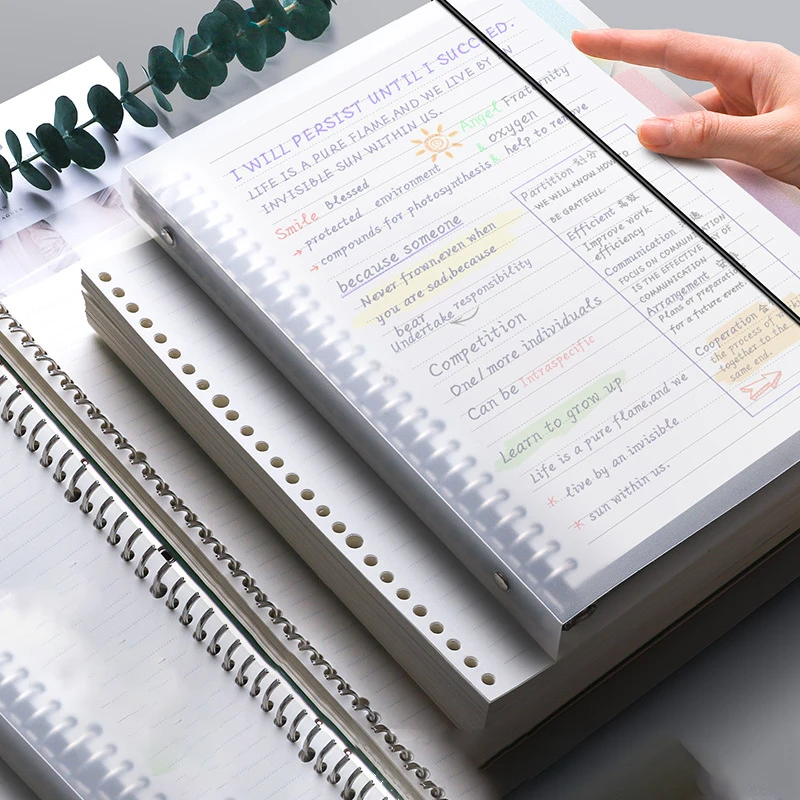 I WILL PERSIST UNTIL I SUCCED.
LIFE IS A PURE FLAME,AND WE LIVE BY AN
INVISIBLE SUN WITHIN US.
Smile Blessed
Angel Fraternity
protected environment & oxygen
compounds for photosynthesis & help to remove
because someone
Never frown,even when
you are sad,because
bear
Undertake responsibility
Competition
One/more individuals
Can be Intraspecific
Learn to grow up
Life is a pure flame,and we
live by an invisible
sun within us.
Partition 划分
WE WILL KNOW HOW TO
BE GRATEFUL.
Efficient 高效
Improve work
efficiency
Communication
FOCUS ON COMMUNICATION
IS THE EFFECTIVE OF
COMMUNICATION
Arrangement
Plans or preparation
for a future event
Cooperation
the process of
together to the
same end.